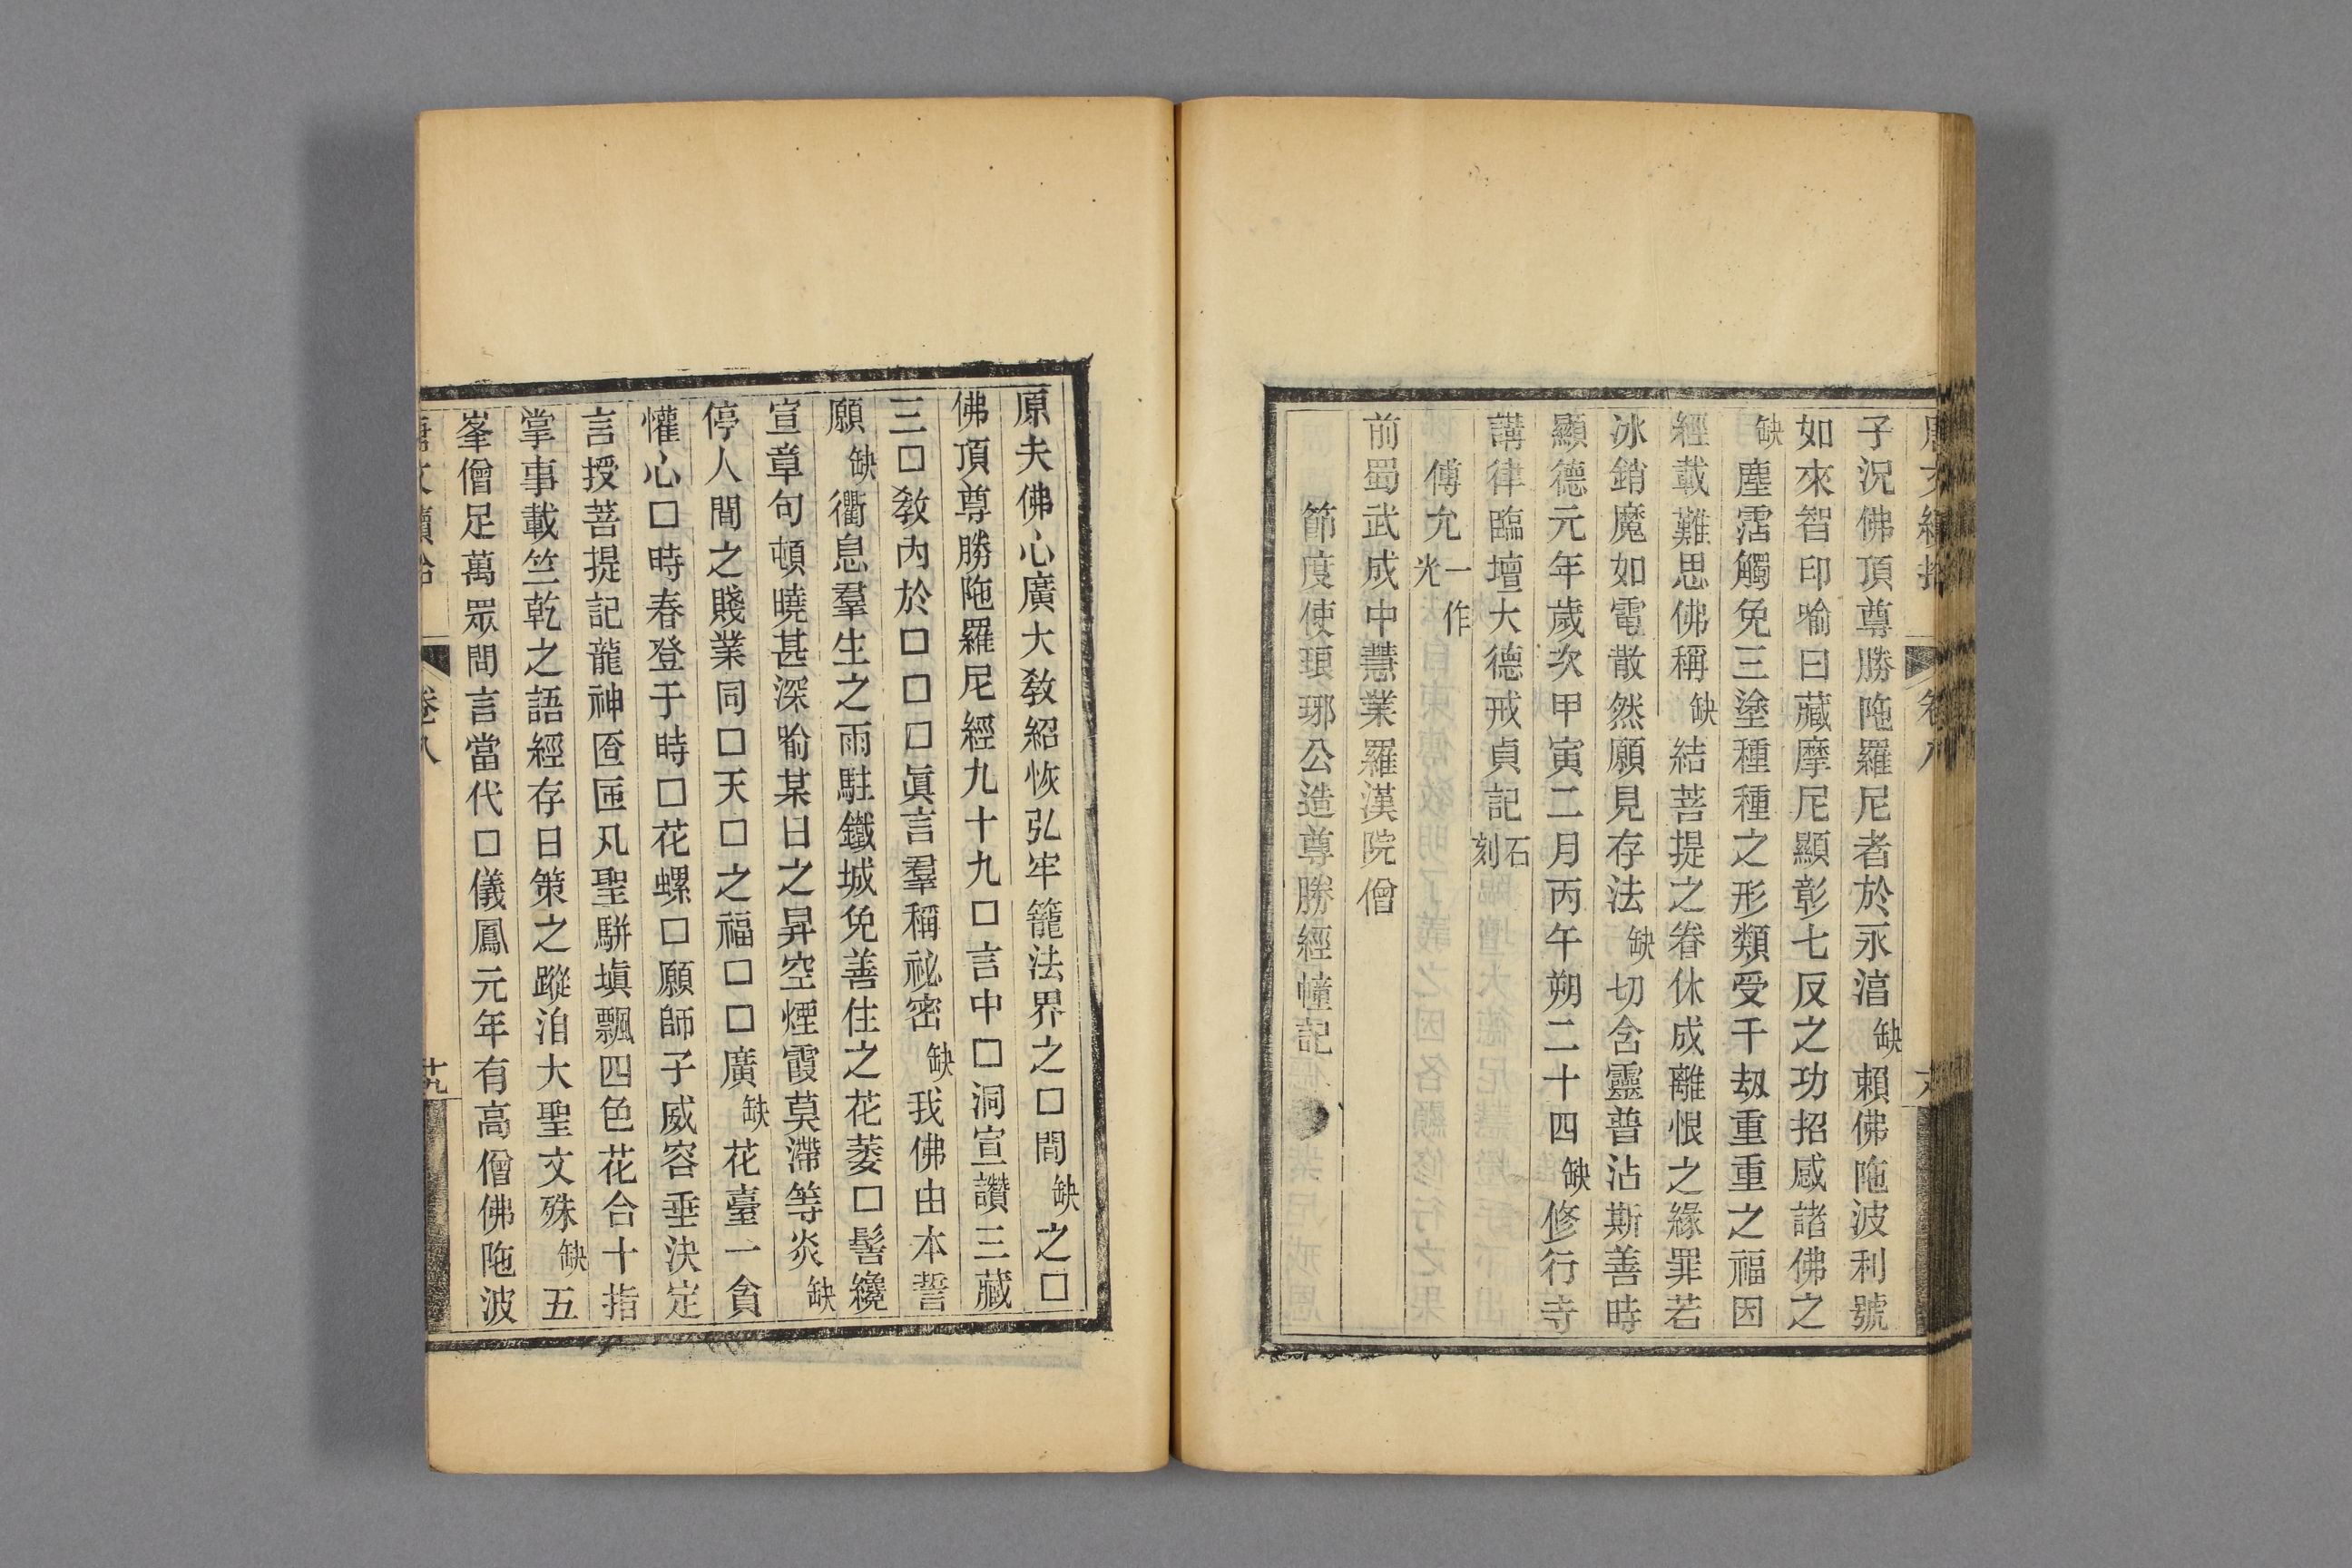 子況佛頂尊勝陁羅尼者於永湻缺頼佛陁波利號
如來智印喻曰藏摩尼顯彰七反之功招感諸佛之
缺塵霑觸免三塗種種之形類受千刼重重之福因
經載難思佛稱缺結菩提之眷休成離恨之緣罪若
冰銷魔如電散然願見存法缺切含靈普沾斯善時
顯德元年歲次甲寅二月丙午朔二十四缺修行寺
講律臨壇大德戒貞記石刻
傅允一作光
前蜀武成中慧業羅漢院僧
節度使琅琊公造尊勝經幢記
原夫佛心廣大敎紹恢弘牢籠法界之□間缺之□
佛頂尊勝陁羅尼經九十九□言中□洞宣讚三藏
三□敎內於□□□眞言羣稱祕密缺我佛由本誓
願缺衢息羣生之雨駐鐵城免善住之花萎□髻纔
宣章句頓曉甚深喻某日之昇空煙霞莫滯等炎缺
停人間之賤業同□天□之福□□廣缺花臺一貟
懽心□時春登于時□花螺□願師子威容垂決定
言授菩提記龍神匼匝凡聖駢塡飄四色花合十指
掌事載竺乾之語經存日策之蹤洎大聖文殊缺五
峯僧足萬眾問言當代□儀鳳元年有高僧佛陁波
唐文續拾
卷八
十九